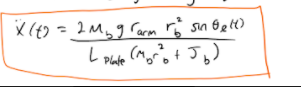 Ẍ(t) = 2 M_b g r_arm r_b² sin θ_l(t)
L_plate (M_b r_b² + J_b)